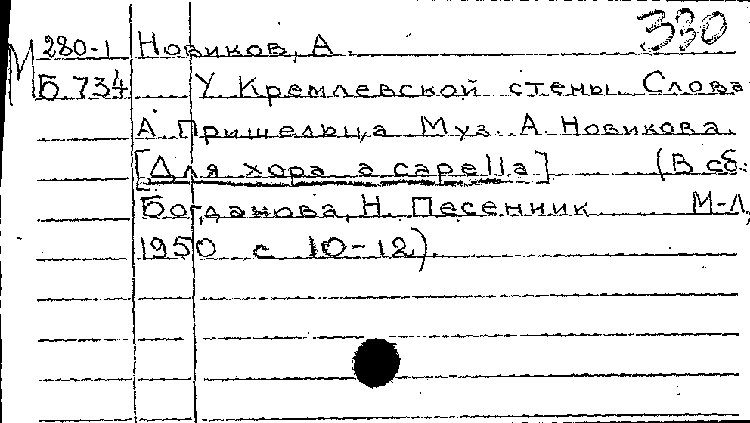 330
М 280-1 Новиков, А.
Б.734 У Кремлевской стены. Слова
А. Пришельца. Муз. А. Новикова.
[Для хора a capella] (В сб.:
Богданова, Н. Песенник М-Л,
1950 с 10-12).